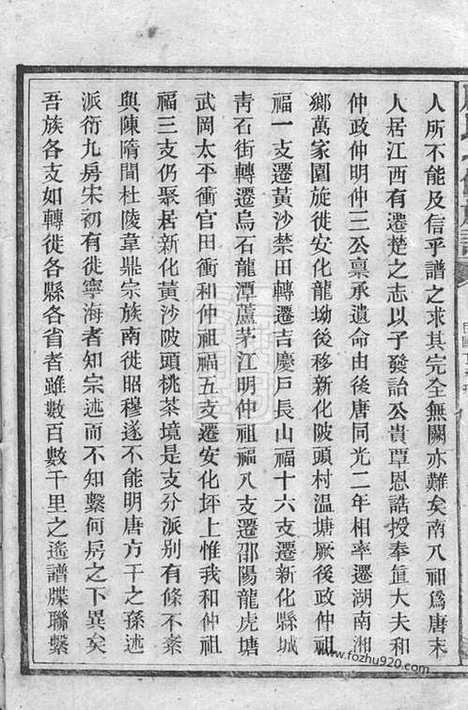 人所不能及信乎譜之求其完全無闕亦難矣南八祖爲唐末
人居江西有遷楚之志以予發詒公貴覃恩誥授奉直大夫和
仲政仲明仲三公稟承遺命由後唐同光二年相率遷湖南湘
鄉萬家園旋徙安化龍坳後移新化陂頭村溫塘厥後政仲祖
福一支遷黃沙禁田轉遷吉慶戶長山福十六支遷新化縣城
靑石街轉遷烏石龍潭蘆茅江明仲祖福八支遷邵陽龍虎塘
武岡太平衝官田衝和仲祖福五支遷安化坪上惟我和仲祖
福三支仍聚居新化黃沙陂頭桃茶境是支分派別有條不紊
與陳隋間杜陵韋鼎宗族南徙昭穆遂不能明唐方干之孫述
派衍九房宋初有徙寧海者知宗述而不知繫何房之下異矣
吾族各支如轉徙各縣各省者雖數百數千里之遙譜牒聯繫
www.fozhu920.com